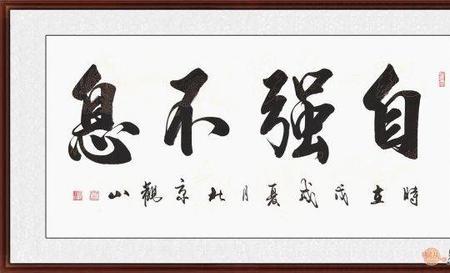 自强不息
時在戊戌夏月北京觀山